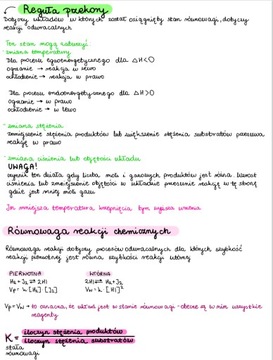 Reguła przekory
Dotyczy układów w których został osiągnięty stan równowagi, dotyczy
reakcji odwracalnych
Ten stan mogą zaburzyć:
- zmiana temperatury
Dla procesu egzoenergetycznego dla ΔH<0
ogrzanie → reakcja w lewo
ochłodzenie → reakcja w prawo
Dla procesu endoenergetycznego dla ΔH>0
ogrzanie → w prawo
ochłodzenie → w lewo
- zmiana stężenia
zmniejszenie stężenia produktów lub zwiększenie stężenia substratów przesuwa
reakcję w prawo
- zmiana ciśnienia lub objętości układu
UWAGA!
czynnik ten działa gdy liczba moli gazowych produktów jest różna. Wzrost
ciśnienia lub zmniejszenie objętości w układzie przesunie reakcję w tę stronę
gdzie jest mniej moli gazu
Im mniejsza temperatura krzepnięcia tym
Równowaga reakcji chemicznych
Równowaga reakcji dotyczy procesów odwracalnych dla których szybkość
reakcji pierwotnej jest równa szybkości reakcji wtórnej
PIERWOTNA: WTÓRNA:
H₂ + I₂ ⇄ 2HI 2HI ⇄ H₂ + I₂
Vp = k₁ [H₂] [I₂] Vw = k₂ [HI]²
Vp = Vw → to oznacza, że układ jest w stanie równowagi - obecne są w nim wszystkie
reagenty
K = iloczyn stężenia produktów
iloczyn stężenia substratów
stała
równowagi